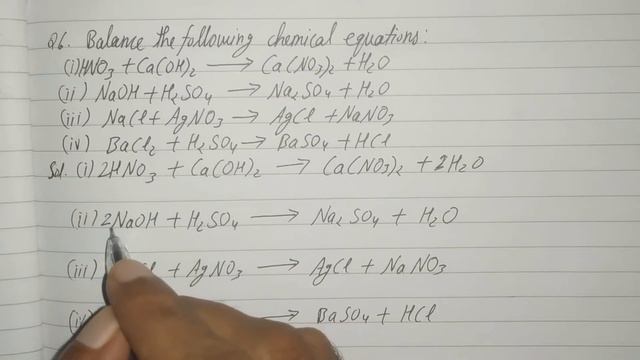 Q6. Balance the following chemical equations:
(i) HNO₃ + Ca(OH)₂ ⟶ Ca(NO₃)₂ + H₂O
(ii) NaOH + H₂SO₄ ⟶ Na₂SO₄ + H₂O
(iii) NaCl + AgNO₃ ⟶ AgCl + NaNO₃
(iv) BaCl₂ + H₂SO₄ ⟶ BaSO₄ + HCl
Sol. (i) 2HNO₃ + Ca(OH)₂ ⟶ Ca(NO₃)₂ + 2H₂O
(ii) 2NaOH + H₂SO₄ ⟶ Na₂SO₄ + H₂O
(iii) + AgNO₃ ⟶ AgCl + NaNO₃
BaSO₄ + HCl